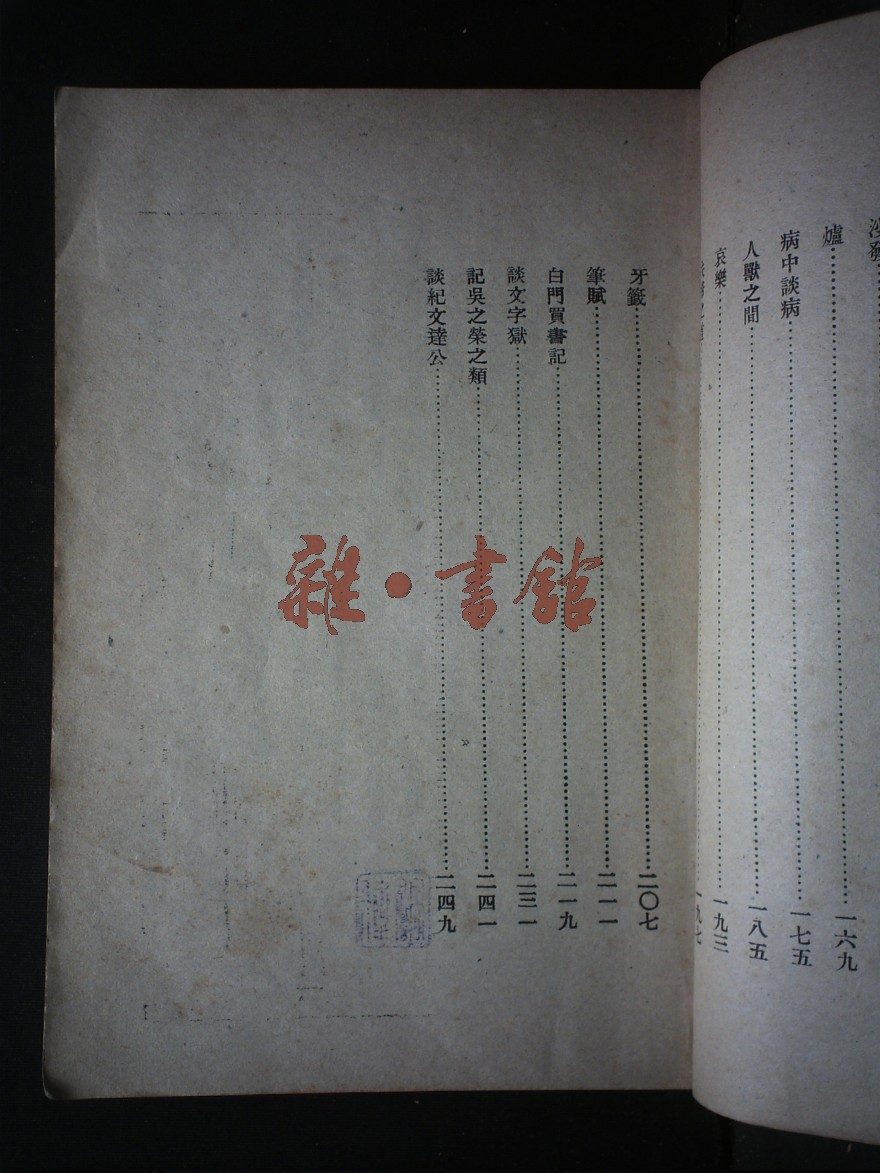 爐⋯⋯一六九
病中談病⋯⋯一七五
人獸之間⋯⋯一八五
哀樂⋯⋯一九三
一九七
牙籤⋯⋯二〇七
筆賦⋯⋯二一一
白門買書記⋯⋯二一九
談文字獄⋯⋯二三一
記吳之榮之類⋯⋯二四一
談紀文達公⋯⋯二四九
雜·書館